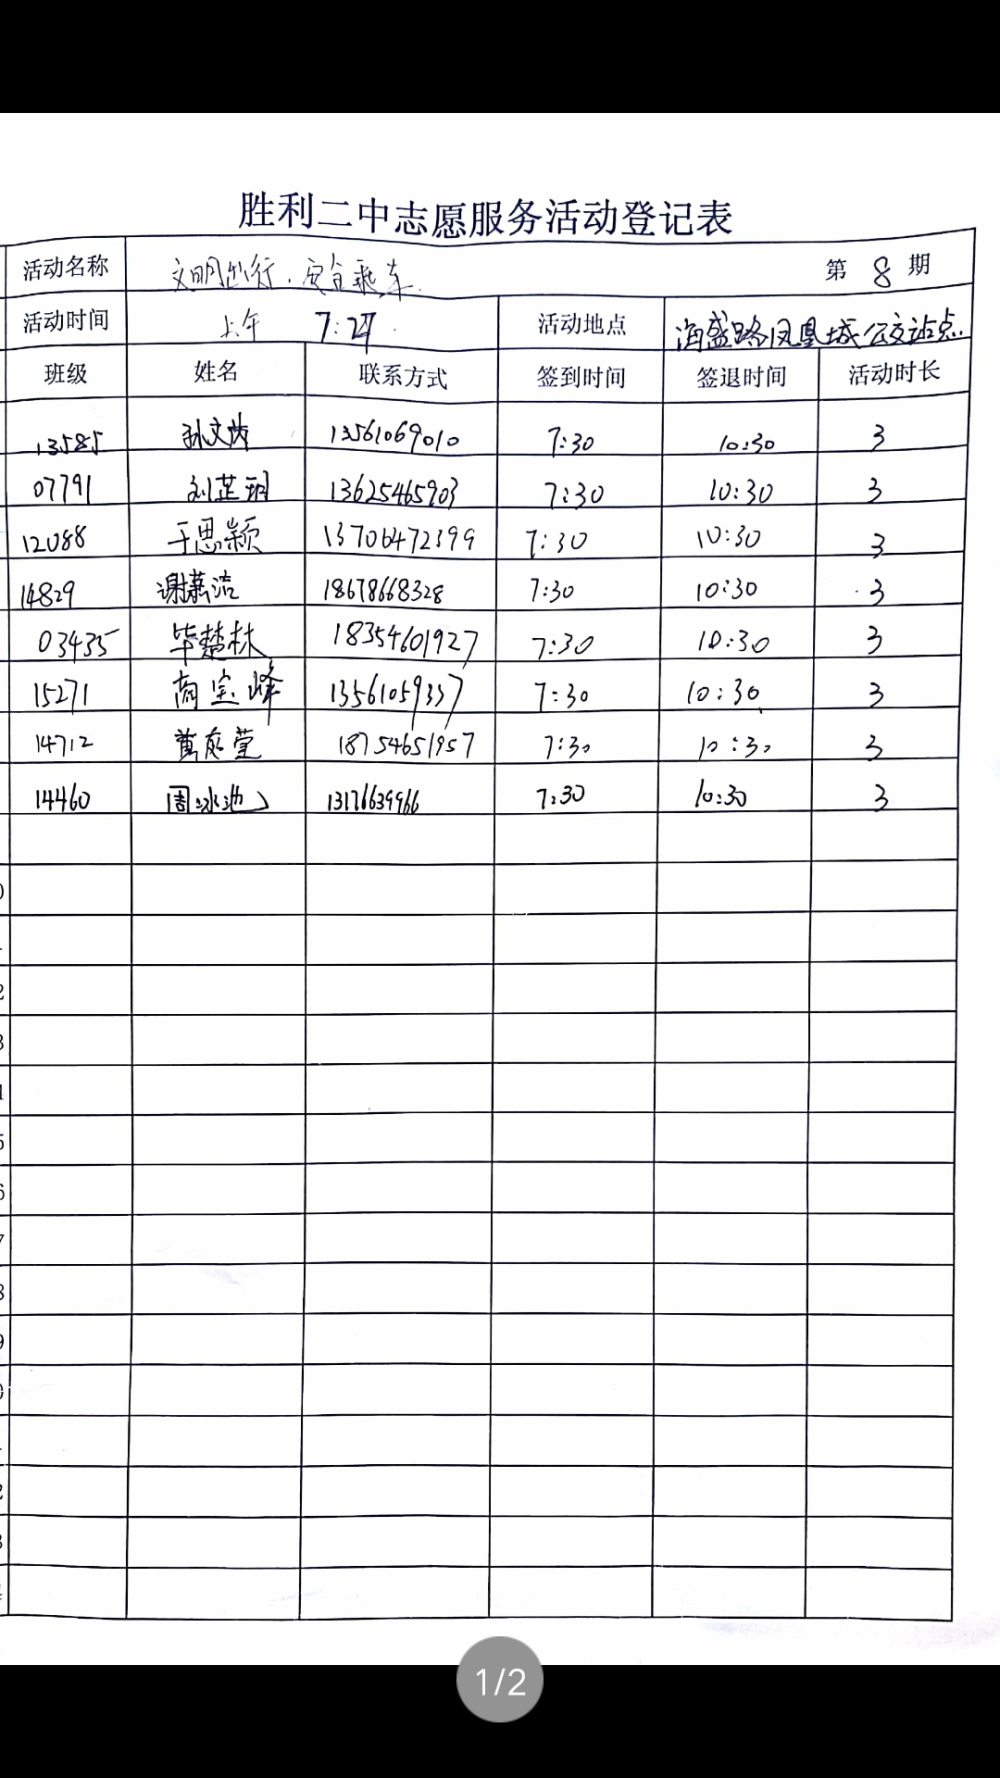 胜利二中志愿服务活动登记表
活动名称 文明出行,安全乘车. 第 8 期
活动时间 上午 7:27. 活动地点 海盛路凤凰城公交站点
班级 姓名 联系方式 签到时间 签退时间 活动时长
13585 孙文 13561069010 7:30 10:30 3
07791 刘芷玥 13625465903 7:30 10:30 3
12088 于思颖 13706472399 7:30 10:30 3
14829 谢潇洁 18678668328 7:30 10:30 3
03435 毕楚林 18354601927 7:30 10:30 3
15271 高宝峰 13561059337 7:30 10:30 3
14712 18754651957 7:30 10:30 3
14460 周冰池 13176639966 7:30 10:30 3
1/2